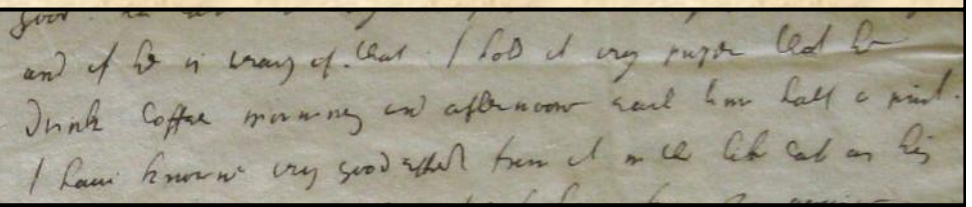 good
and if he is weary of that I hold it very proper that he
Drink Coffee morning and afternoon each time half a pint.
I have knowne very good effect from it in the like Case as his